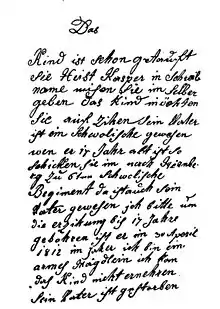 Das
Kind ist schon getauft
Sie Heist Kasper in Schreib
name misen Sie im Selber
geben das Kind möchten
Sie auf Zihen Sein Vater
ist ein Schwolische gewesen
wen er 17 Jahr alt ist so
Schicken Sie im nach Nirnberg
zu 6ten Schwolische
Regiment da ist auch Sein
Vater gewesen ich bitte um
die erzihung bis 17 Jahre
gebohren ist er im 30 Aperil
1812 im jaher ich bin ein
armes Mägdlein ich kan
das Kind nicht ernehren
Sein Vater ist gestorben